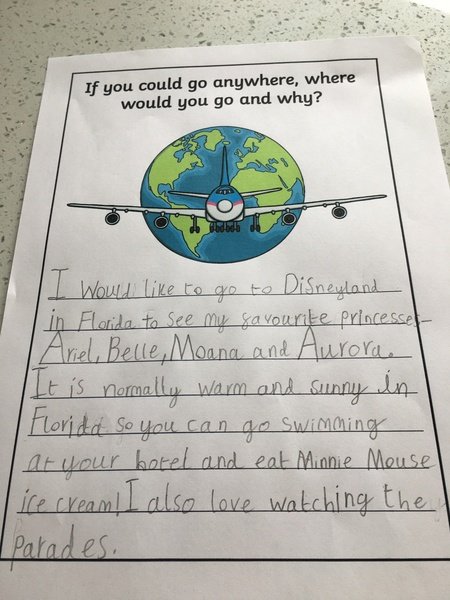 If you could go anywhere, where
would you go and why?
I would like to go to Disneyland
in Florida to see my favourite princesses-
Ariel, Belle, Moana and Aurora.
It is normally warm and sunny in
Florida so you can go swimming
at your hotel and eat Minnie Mouse
ice cream! I also love watching the
parades.